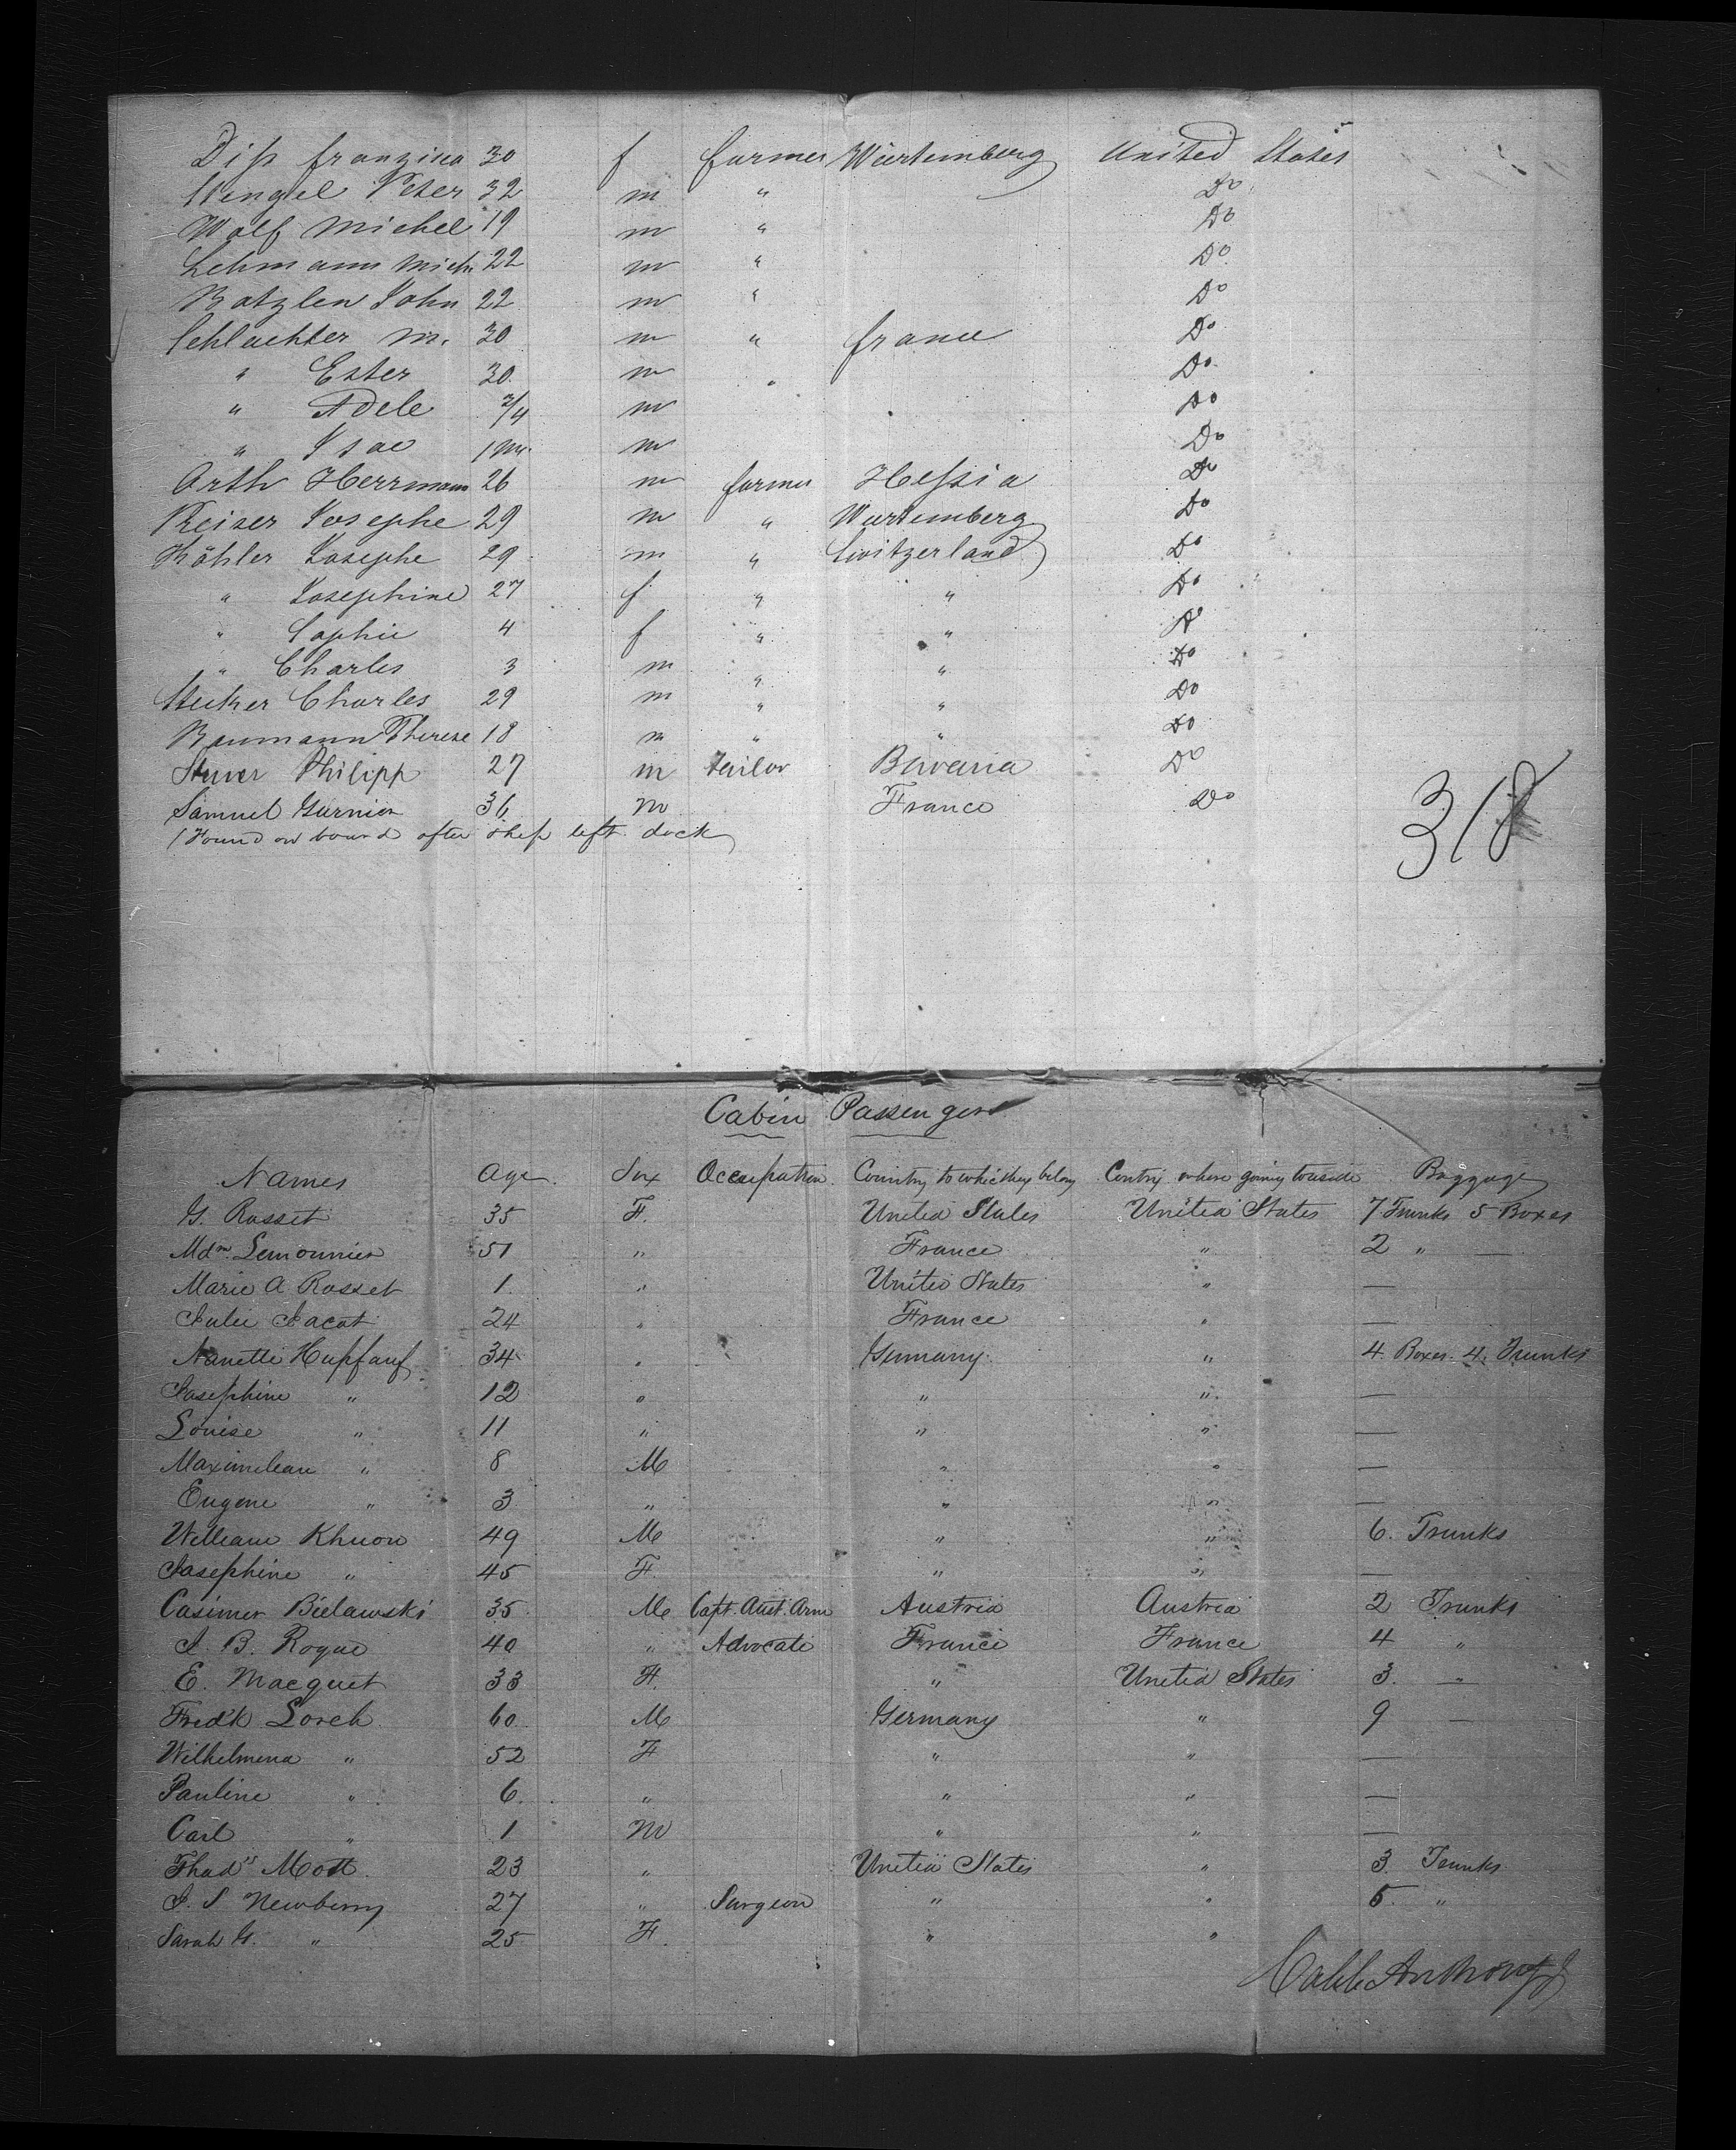 Diss franzisca 30 f farmer Würtemberg United States
Wengel Peter 32 m " Do
Wolf Michel 19 m " Do
Lehmann Mich. 22 m " Do
Batzlen John 22 m " Do
Schlachter M. 30 m " france Do
" Ester 30 m " Do
" Adele 3/4 m Do
" Isac 1 m. m Do
Orth Herrmann 26 m farmer Hessia Do
Keiser Josephe 29 m " Wurtemberg Do
Köhler Josephe 29 m " Switzerland Do
" Josephine 27 f " " Do
" Sophie 4 f " " Do
" Charles 3 m " " Do
Charles 29 m " " Do
Baumann Therese 18 m " " Do
Stuver Philipp 27 m tailor Bavaria Do
Samuel Garnier 36 m France Do
(Found on board after ship left dock)
318
Cabin Passengers
Names Age Sex Occupation Country to which they belong Contry where going to reside Baggage
G. Rosset 35 F. United States United States 7 Trunks 5 Boxes
Mdm. Lemonnier 51 " France " 2 " —
Marie A Rosset 1 " United States " —
Julie Jacot 24 " France " —
Nanette Hupfauf 34 " Germany " 4 Boxes 4 Trunks
Josephine " 12 " " " —
Louise " 11 " " " —
Maximilean " 8 M " " —
Eugene " 3 " " " —
William Khuon 49 M " " 6 Trunks
Josephine " 45 F " " —
Casimer Bielawski 35 M Capt. Aust. Arm Austria Austria 2 Trunks
J. B. Rogue 40 " Advocate France France 4 "
E. Macquet 33 F. " United States 3 "
Fred'k Lorch 60 M Germany " 9 —
Wilhelmena " 52 F " " —
Pauline " 6 " " " —
Carl " 1 M " " —
Thad's Mott 23 " United States " 3 Trunks
J. S Newberry 27 " Surgeon " " 5 "
Sarah G. " 25 F " "
Caleb Anthony Jr